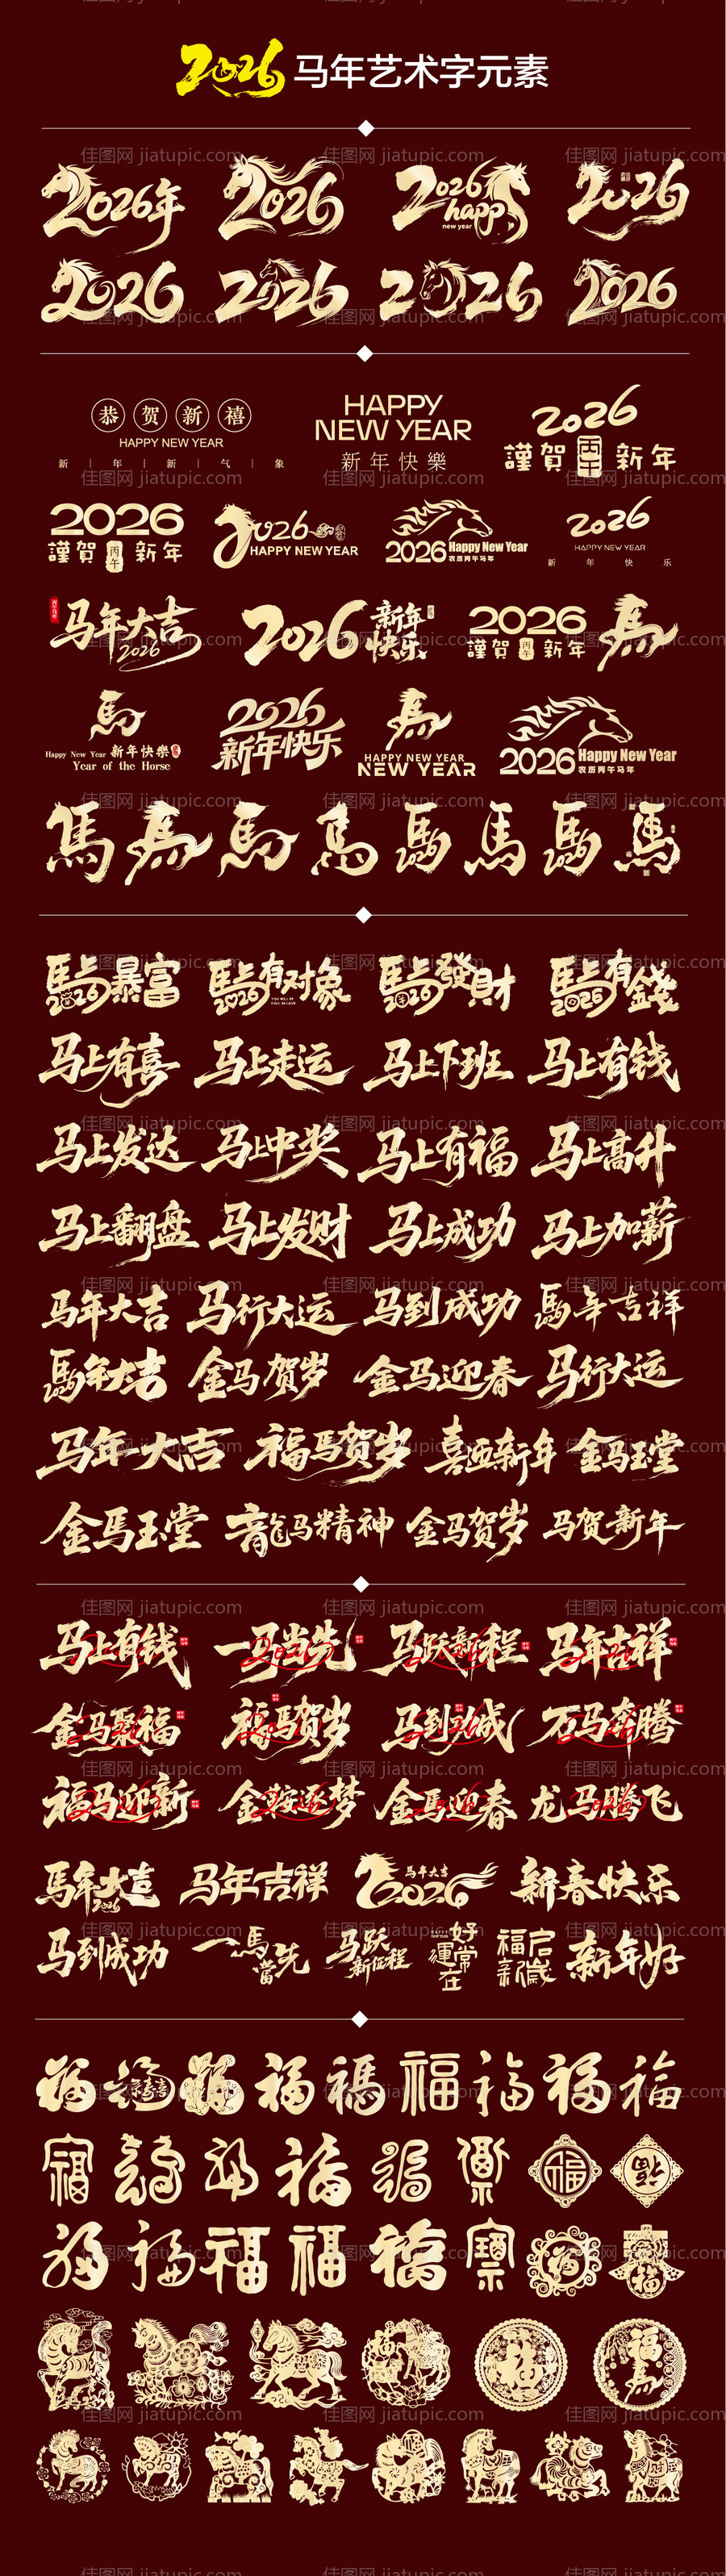 2026 马年艺术字元素
2026年 2026 2026 happy new year 2026
2026 2026 2026 2026
恭 贺 新 禧
HAPPY NEW YEAR
新 | 年 | 新 | 气 | 象
HAPPY
NEW YEAR
新年快樂
2026
謹賀 丙午 新年
2026
謹賀 丙午 新年
2026
HAPPY NEW YEAR
2026 Happy New Year
农历丙午马年
2026
HAPPY NEW YEAR
新 年 快 乐
马年大吉
2026
2026 新年快乐
2026
謹賀 丙午 新年 馬
馬
Happy New Year 新年快樂
Year of the Horse
2026
新年快乐
馬
HAPPY NEW YEAR
NEW YEAR
2026 Happy New Year
农历丙午马年
馬 馬 馬 馬 馬 2026 馬 馬 2026 馬
馬上暴富 2026 馬上有对象 2026 馬上發財 2026 馬上有錢 2026
马上有喜 马上走运 马上下班 马上有钱
马上发达 马上中奖 马上有福 马上高升
马上翻盘 马上发财 马上成功 马上加薪
马年大吉 马行大运 马到成功 馬年吉祥
馬年大吉 2026 金马贺岁 金马迎春 马行大运
马年大吉 福马贺岁 喜迎新年 金马玉堂
金馬玉堂 龍马精神 金马贺岁 马贺新年
马上有钱 一马当先 马跃新程 马年吉祥
金马聚福 福马贺岁 马到功成 万马奔腾
福马迎新 金鞍逐梦 金馬迎春 龙马腾飞
馬年大吉 2026 马年吉祥 馬年大吉 2026 新春快乐
马到成功 一馬當先 马跃新征程 好運常在 福启新歲 新年好
福 福 福 福 福 福 福 福 福
福 福 福 福 福 福 福
福 福 福 福 福 福 福
福 福 福
佳图网 jiatupic.com